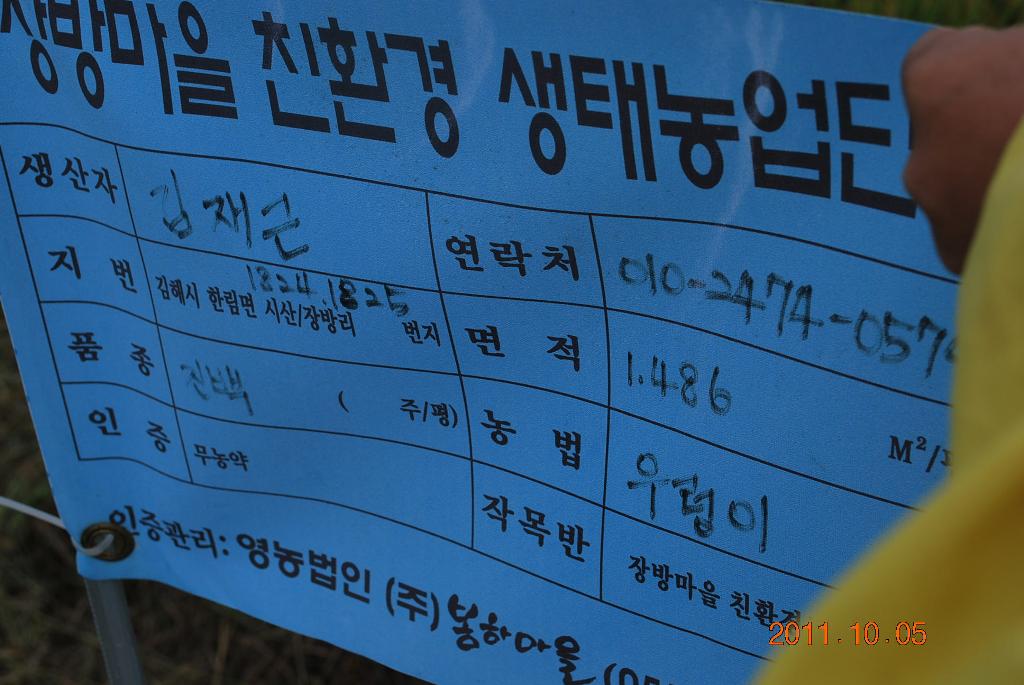 장방마을 친환경 생태농업단
생산자 김재근 연락처 010-2474-057
지 번 1824, 1825 김해시 한림면 시산/장방리 번지 면 적 1.486 M²/
품 종 진백 ( 주/평) 농 법 우렁이
인 증 무농약 작목반 장방마을 친환경
인증관리: 영농법인 (주)봉하마을
2011.10.05